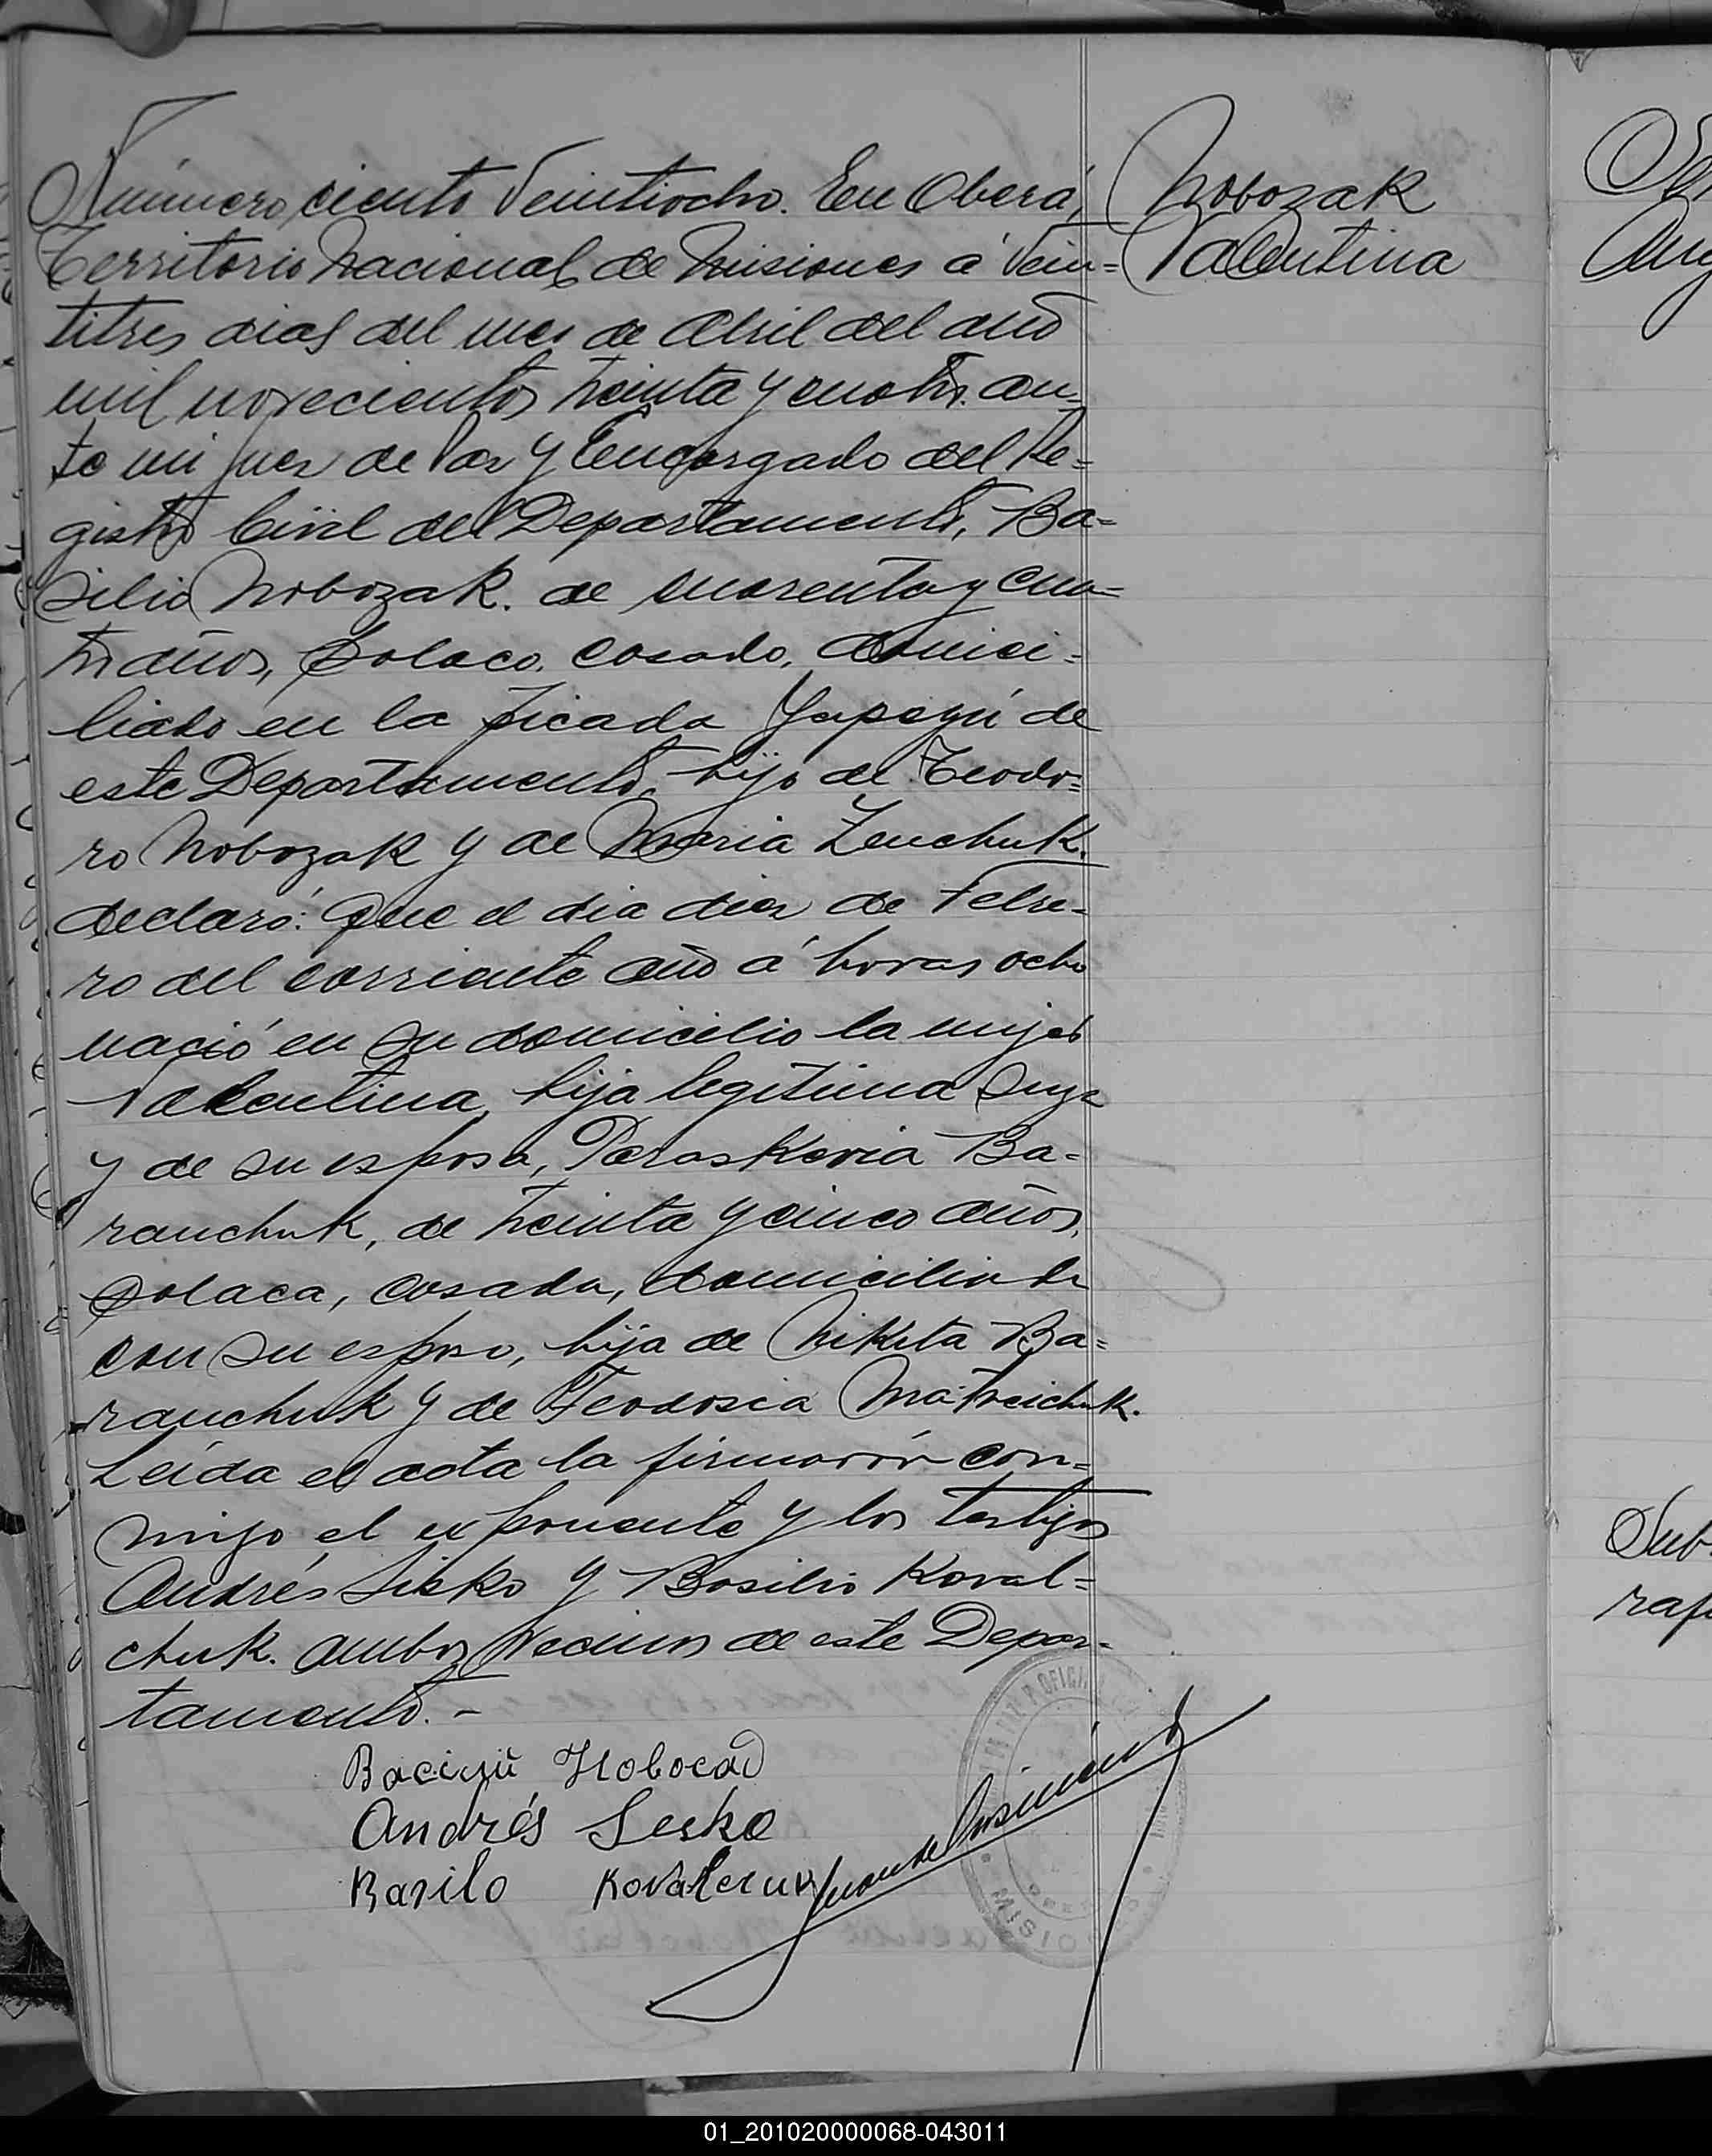 Número ciento Veintiocho. En Oberá,
Territorio Nacional de Misiones á Vein=
titres dias del mes de Abril del año
mil novecientos treinta y cuatro. an=
te mi Juez de Paz y Encargado del Re=
gistro Civil del Departamento, Ba=
silio Nobozak. de cuarenta y cua=
tro años, polaco, casado, domici=
liado en la picada Yapeyú de
este Departamento, hijo de Teodo=
ro Nobozak y de Maria Zenchuk.
declaró: Que el dia diez de Febre=
ro del corriente año á horas ocho
nació en su domicilio la mujer
Valentina, hija legitima suya
y de su esposa, Paraskevia Ba=
ranchuk, de treinta y cinco años,
polaca, casada, domiciliada
con su esposo, hija de Nikita Ba=
ranchuk y de Teodosia Matveichuk.
Leida el acta la firmaron con=
migo el exponente y los testigos
Andrés Lisko y Basilio Koval=
chuk. ambos vecinos de este Depar=
tamento.-
Nobozak
Valentina
Андrés Lesko
Basilo Kovalcruk
MISIONES
Sub.
01_201020000068-043011